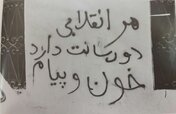 هر انقلابی
دو رسالت دارد
خون و پیام